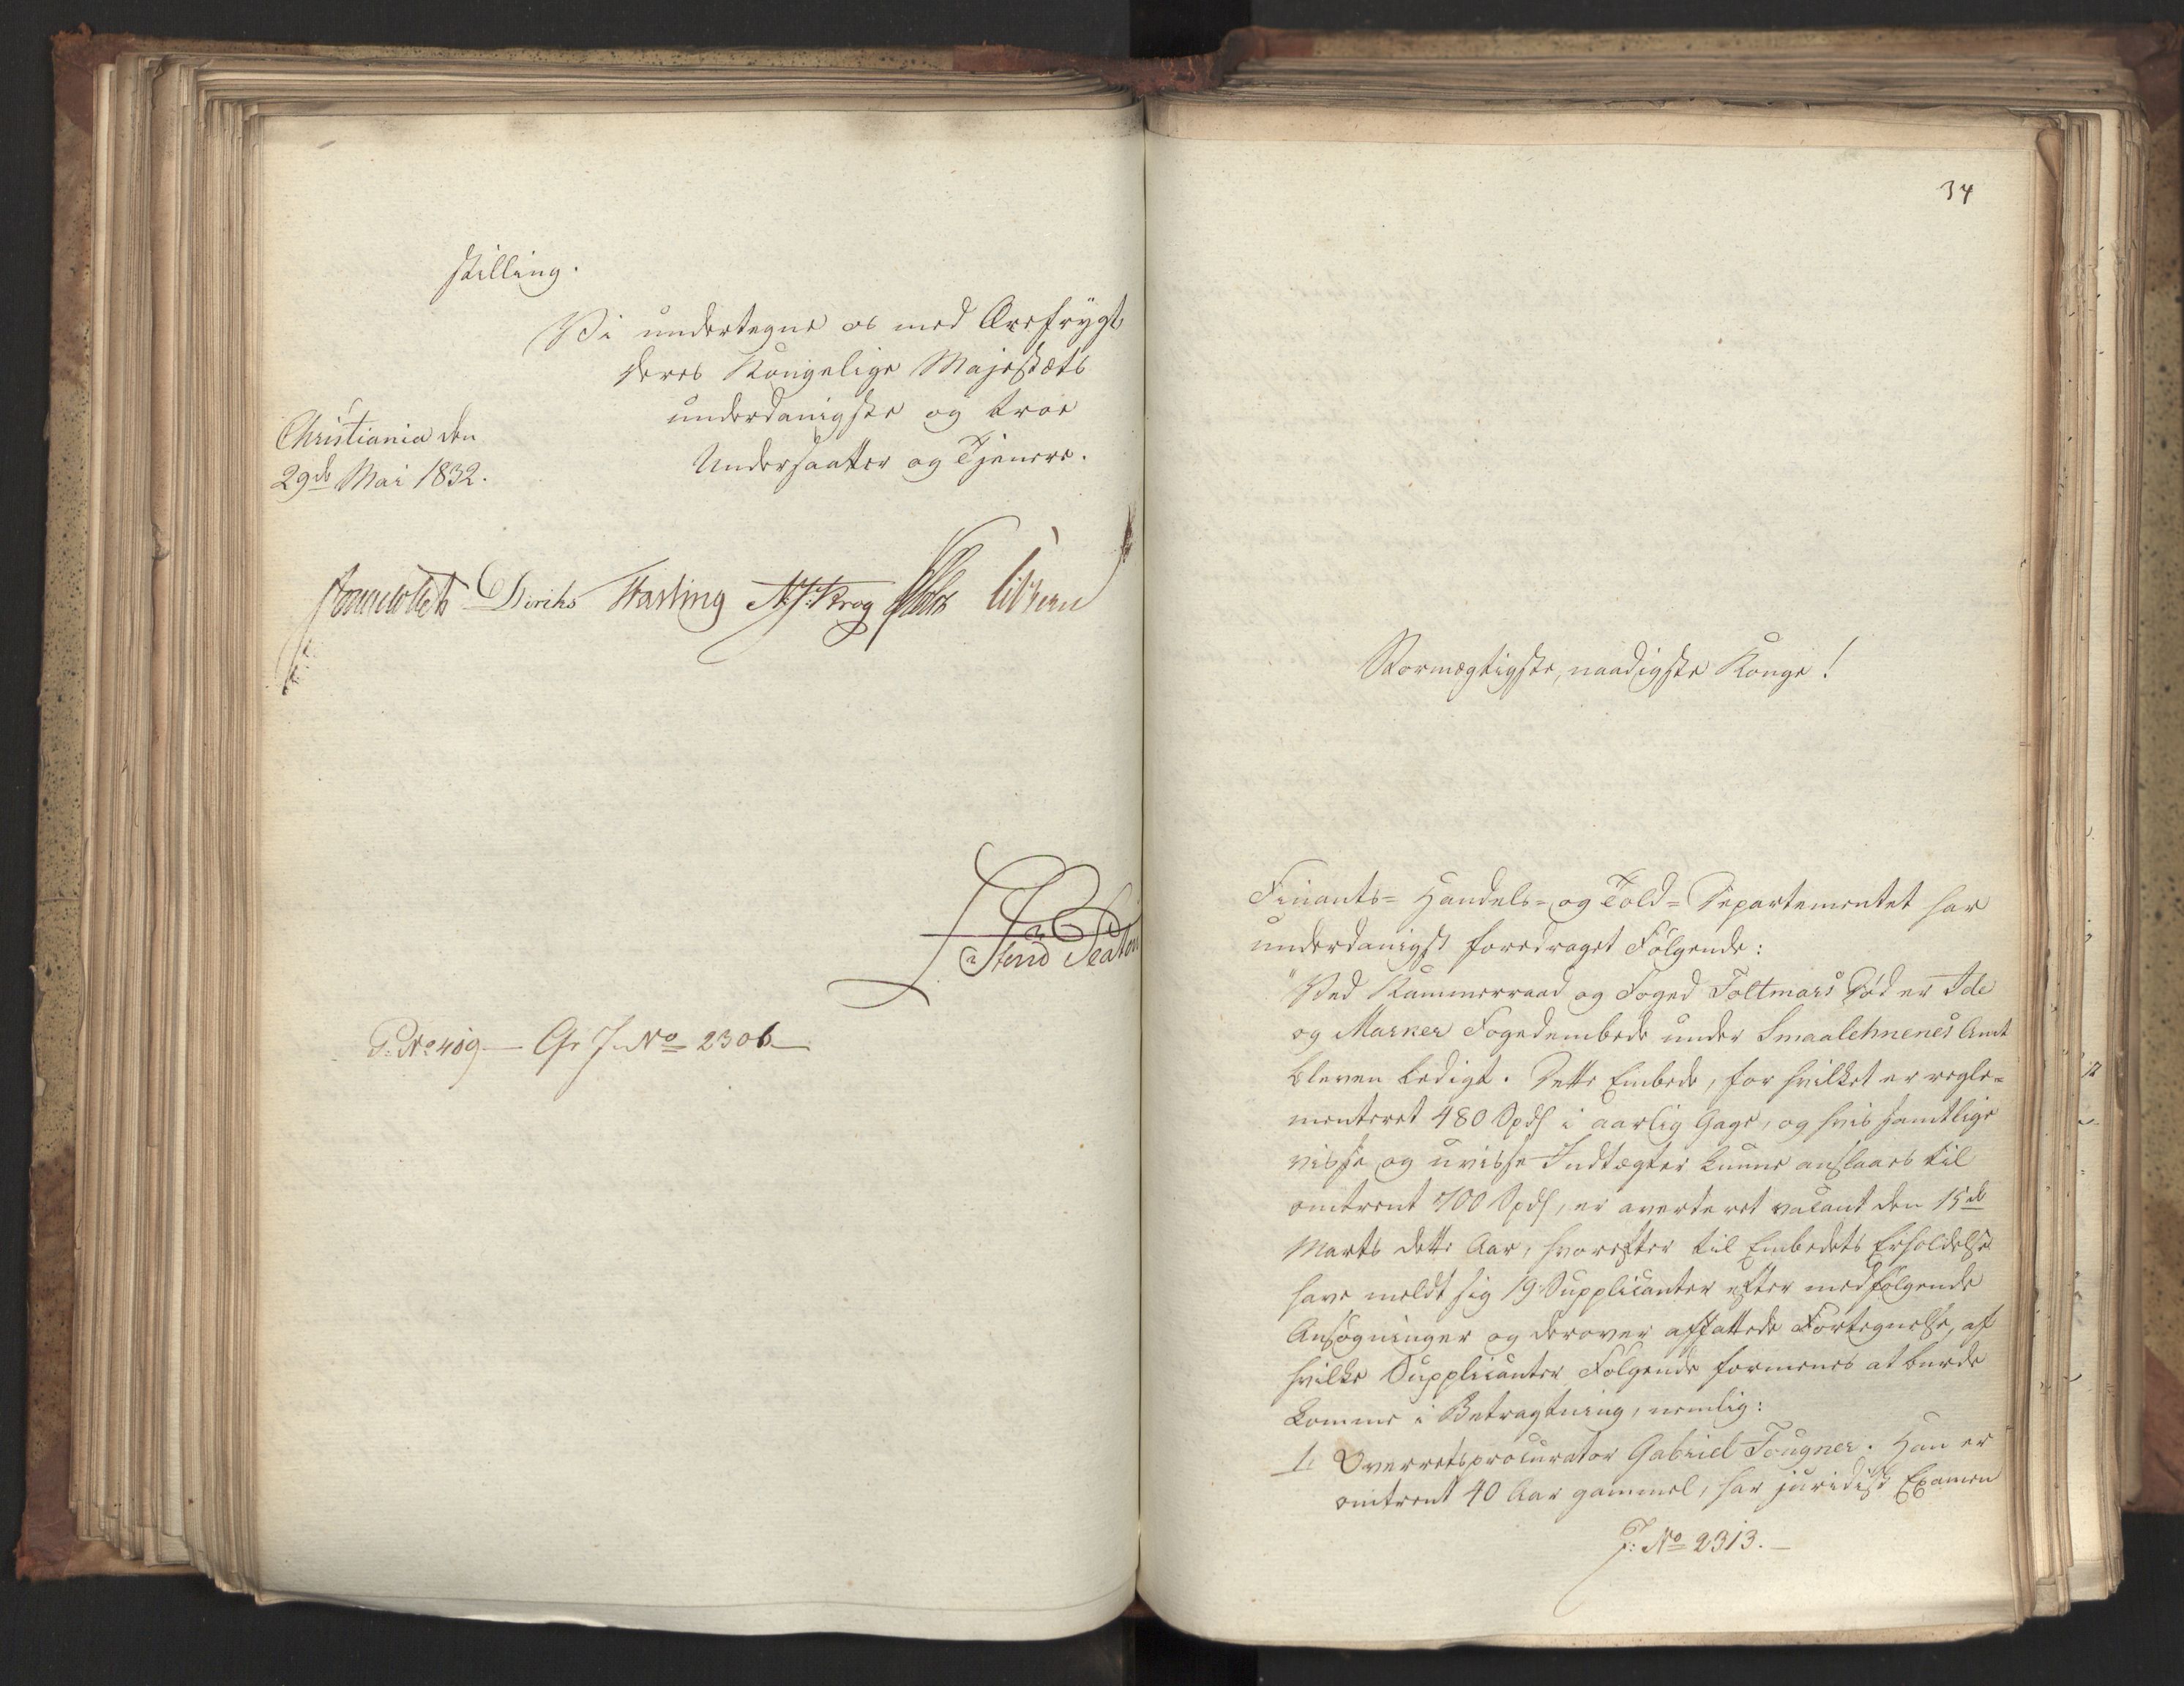 stilling.
Vi undertegne os med Ærefrygt
Deres Kongelige Majestæts
underdanigste og troe
Undersaatter og Tjenere.
Christiania den
29de Mai 1832.
Diriks Fasting N. J. Krog
P: No 409 — Gr J. No 2306
34
Stormægtigste, naadigste Konge!
Finants- Handels- og Told- Departementet har
underdanigst foredraget Følgende:
"Ved Kammerraad og Foged Foltmars Død er Ide
og Marker Fogedembede under Smaalehnenes Amt
bleven ledigt. Dette Embede, for hvilket er regle-
menteret 480 Spd i aarlig Gage, og hvis samtlige
visse og uvisse Indtægter kunne anslaaes til
omtrent 700 Spd, er averteret vacant den 15de
Marts dette Aar, hvorefter til Embedets Erholdelse
have meldt sig 19 Supplicanter efter medfølgende
Ansøgninger og derover affattede Fortegnelse, af
hvilke Supplicanter Følgende formenes at burde
komme i Betragtning, nemlig:
1. Overretsprocurator Gabriel Fougner. Han er
omtrent 40 Aar gammel, har juridisk Examen
J: No 2313. —